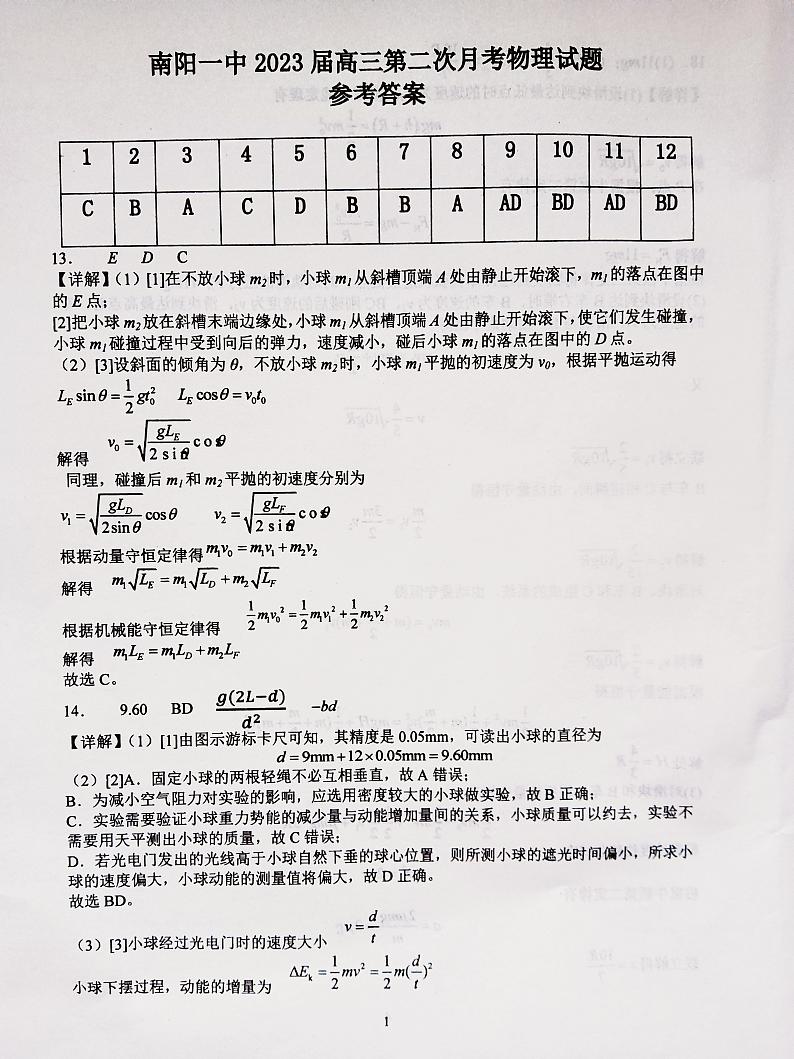 南阳一中 2023 届高三第二次月考物理试题
参考答案
1 2 3 4 5 6 7 8 9 10 11 12
C B A C D B B A AD BD AD BD
13. E D C
【详解】(1)[1]在不放小球 m₂时，小球 m₁从斜槽顶端 A 处由静止开始滚下，m₁的落点在图中
的 E 点；
[2]把小球 m₂放在斜槽末端边缘处，小球 m₁从斜槽顶端 A 处由静止开始滚下，使它们发生碰撞，
小球 m₁碰撞过程中受到向后的弹力，速度减小，碰后小球 m₁的落点在图中的 D 点。
(2)[3]设斜面的倾角为 θ，不放小球 m₂时，小球 m₁平抛的初速度为 v₀，根据平抛运动得
L_E sinθ = 1/2 gt₀² L_E cosθ = v₀t₀
解得 v₀ = √(gL_E / 2sinθ) cosθ
同理，碰撞后 m₁和 m₂平抛的初速度分别为
v₁ = √(gL_D / 2sinθ) cosθ v₂ = √(gL_F / 2sinθ) cosθ
根据动量守恒定律得 m₁v₀ = m₁v₁ + m₂v₂
解得 m₁√L_E = m₁√L_D + m₂√L_F
根据机械能守恒定律得 1/2 m₁v₀² = 1/2 m₁v₁² + 1/2 m₂v₂²
解得 m₁L_E = m₁L_D + m₂L_F
故选 C。
14. 9.60 BD g(2L−d)/d² −bd
【详解】(1)[1]由图示游标卡尺可知，其精度是 0.05mm，可读出小球的直径为
d = 9mm + 12×0.05mm = 9.60mm
(2)[2]A．固定小球的两根轻绳不必互相垂直，故 A 错误；
B．为减小空气阻力对实验的影响，应选用密度较大的小球做实验，故 B 正确；
C．实验需要验证小球重力势能的减少量与动能增加量间的关系，小球质量可以约去，实验不
需要用天平测出小球的质量，故 C 错误；
D．若光电门发出的光线高于小球自然下垂的球心位置，则所测小球的遮光时间偏小，所求小
球的速度偏大，小球动能的测量值将偏大，故 D 正确。
故选 BD。
(3)[3]小球经过光电门时的速度大小 v = d/t
小球下摆过程，动能的增量为 ΔE_k = 1/2 mv² = 1/2 m(d/t)²
1